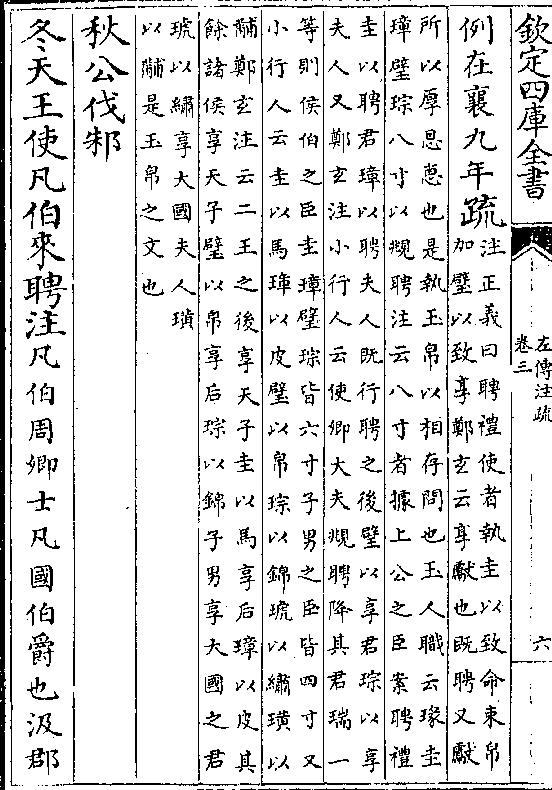 欽定四庫全書
左傳注疏
卷三
六
例在襄九年疏
注正義曰聘禮使者執圭以致命束帛
加璧以致享鄭玄云享獻也既聘又獻
所以厚恩惠也是執玉帛以相存問也玉人職云瑑圭
璋璧琮八寸以覜聘注云八寸者據上公之臣案聘禮
圭以聘君璋以聘夫人既行聘之後璧以享君琮以享
夫人又鄭玄注小行人云使卿大夫覜聘降其君瑞一
等則侯伯之臣圭璋璧琮皆六寸子男之臣皆四寸又
小行人云圭以馬璋以皮璧以帛琮以錦琥以繡璜以
黼鄭玄注云二王之後享天子圭以馬享后璋以皮其
餘諸侯享天子璧以帛享后琮以錦子男享大國之君
琥以繡享大國夫人璜
以黼是玉帛之文也
秋公伐邾
冬天王使凡伯來聘注凡伯周卿士凡國伯爵也汲郡